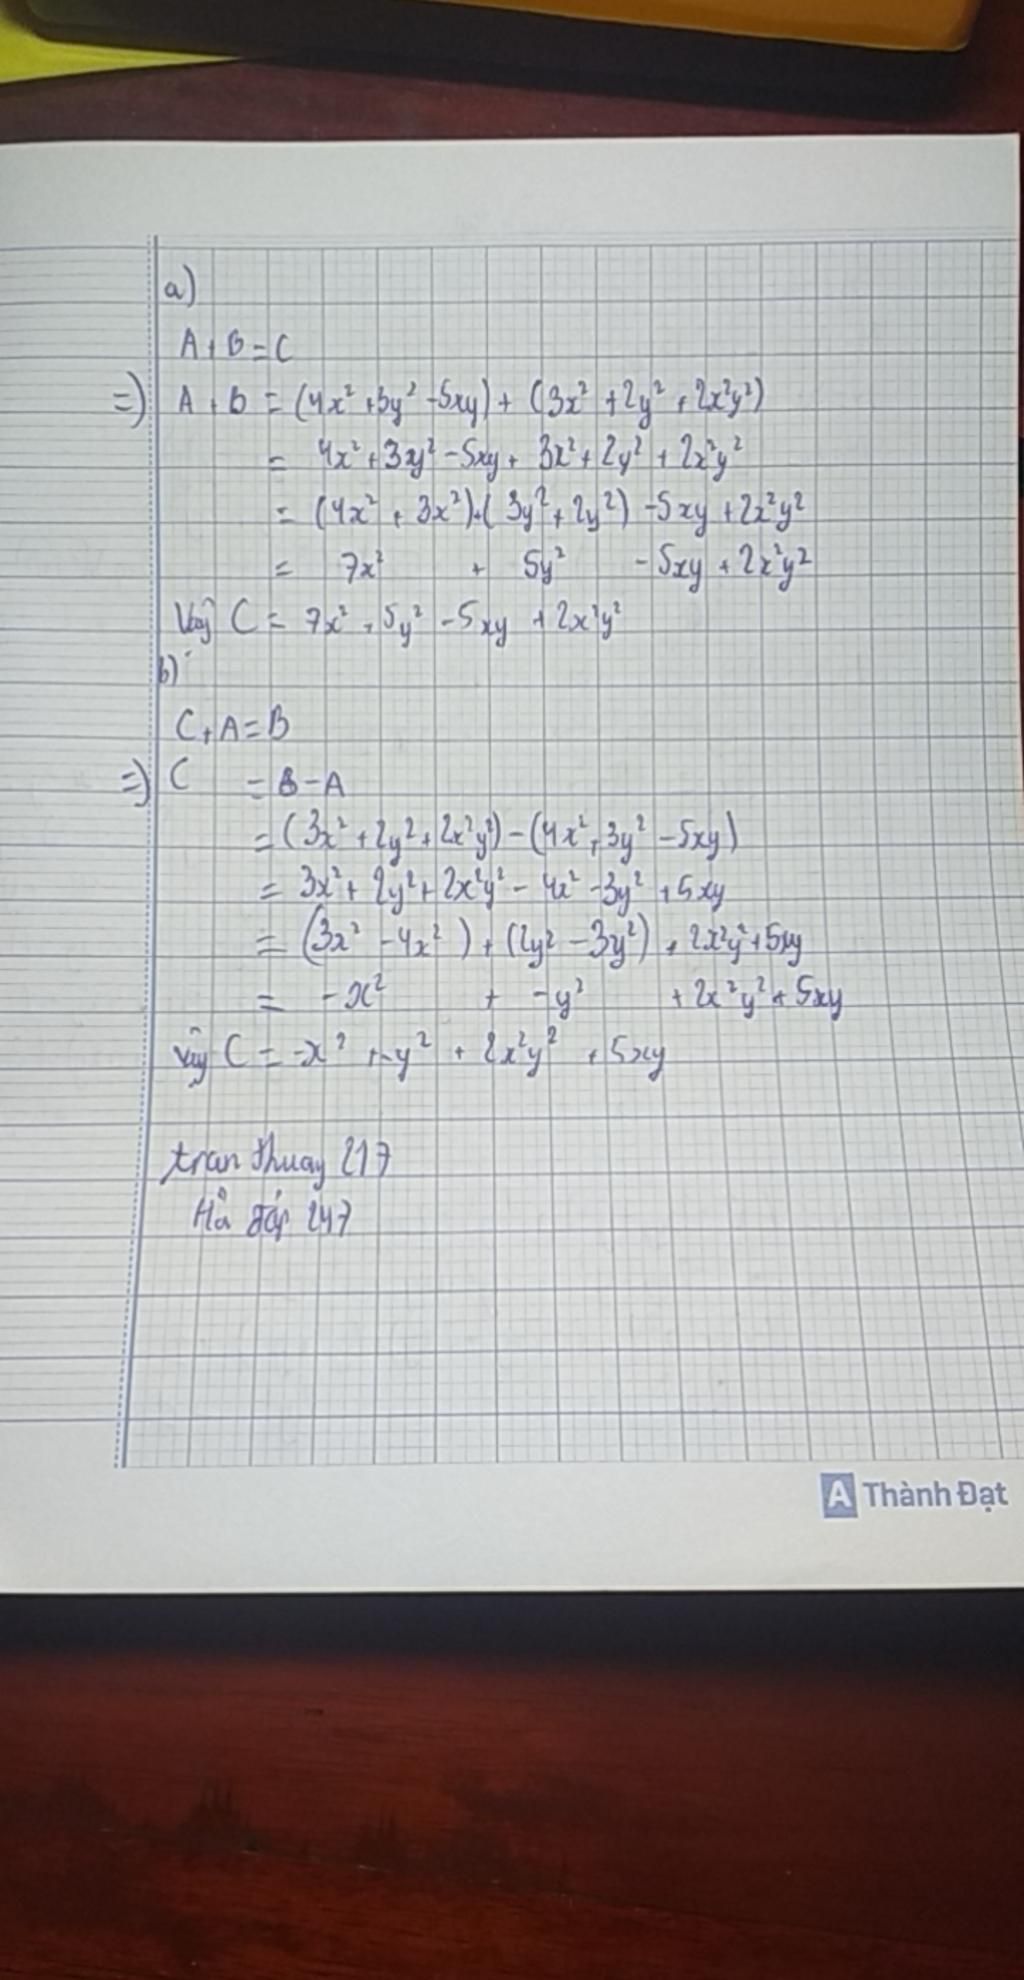 a)
A + B = C
=) A + B = (4x² + 3y² - 5xy) + (3x² + 2y² + 2x²y²)
= 4x² + 3y² - 5xy + 3x² + 2y² + 2x²y²
= (4x² + 3x²) + (3y² + 2y²) - 5xy + 2x²y²
= 7x² + 5y² - 5xy + 2x²y²
Vậy C = 7x² + 5y² - 5xy + 2x²y²
b)
C + A = B
=) C = B - A
= (3x² + 2y² + 2x²y²) - (4x² + 3y² - 5xy)
= 3x² + 2y² + 2x²y² - 4x² - 3y² + 5xy
= (3x² - 4x²) + (2y² - 3y²) + 2x²y² + 5xy
= -x² + -y² + 2x²y² + 5xy
Vậy C = -x² + -y² + 2x²y² + 5xy
tran thuay 217
Hỏi đáp 247
A Thành Đạt